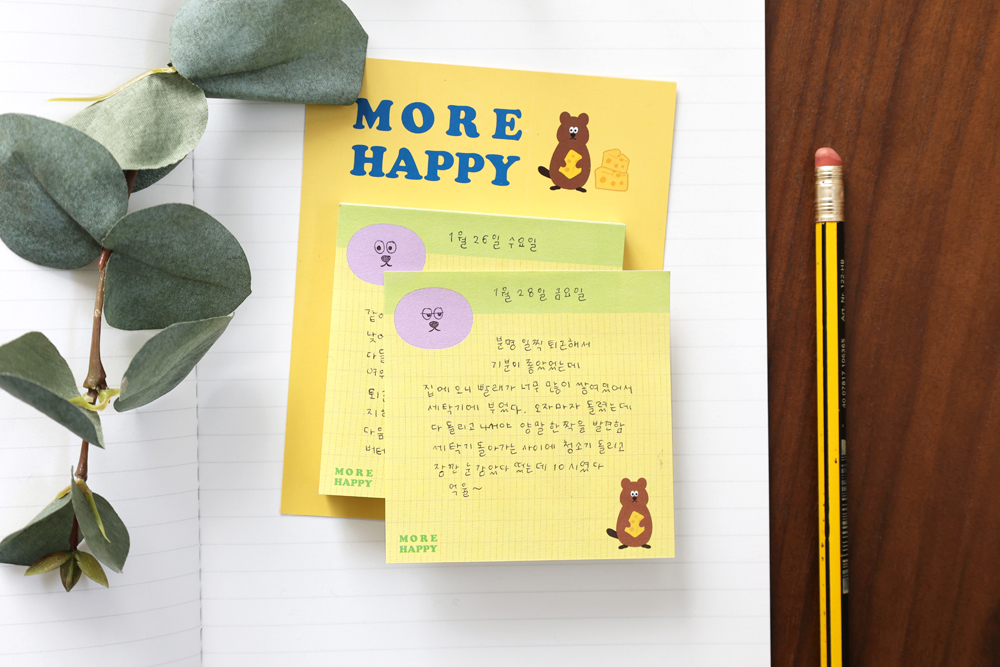 MORE
HAPPY
1월 26일 수요일
퇴근
다음
MORE
HAPPY
1월 28일 금요일
분명 일찍 퇴근해서
기분이 좋았었는데
집에 오니 빨래가 너무 많이 쌓여있어서
세탁기에 부었다. 오자마자 돌렸는데
다 돌리고 나서야 양말 한 짝을 발견함
세탁기 돌아가는 사이에 청소기 돌리고
잠깐 눈 감았다 떴는데 10시였다
억울~
MORE
HAPPY
Art. Nr. 122-HB